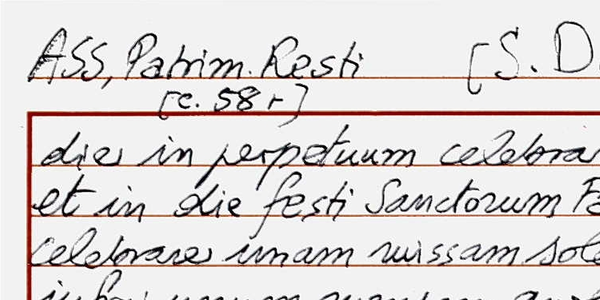 ASS, Patrim. Resti [S. D.
[c. 58 r]
die in perpetuum celebra
et in die festi Sanctorum
celebrare unam missam sole
unum